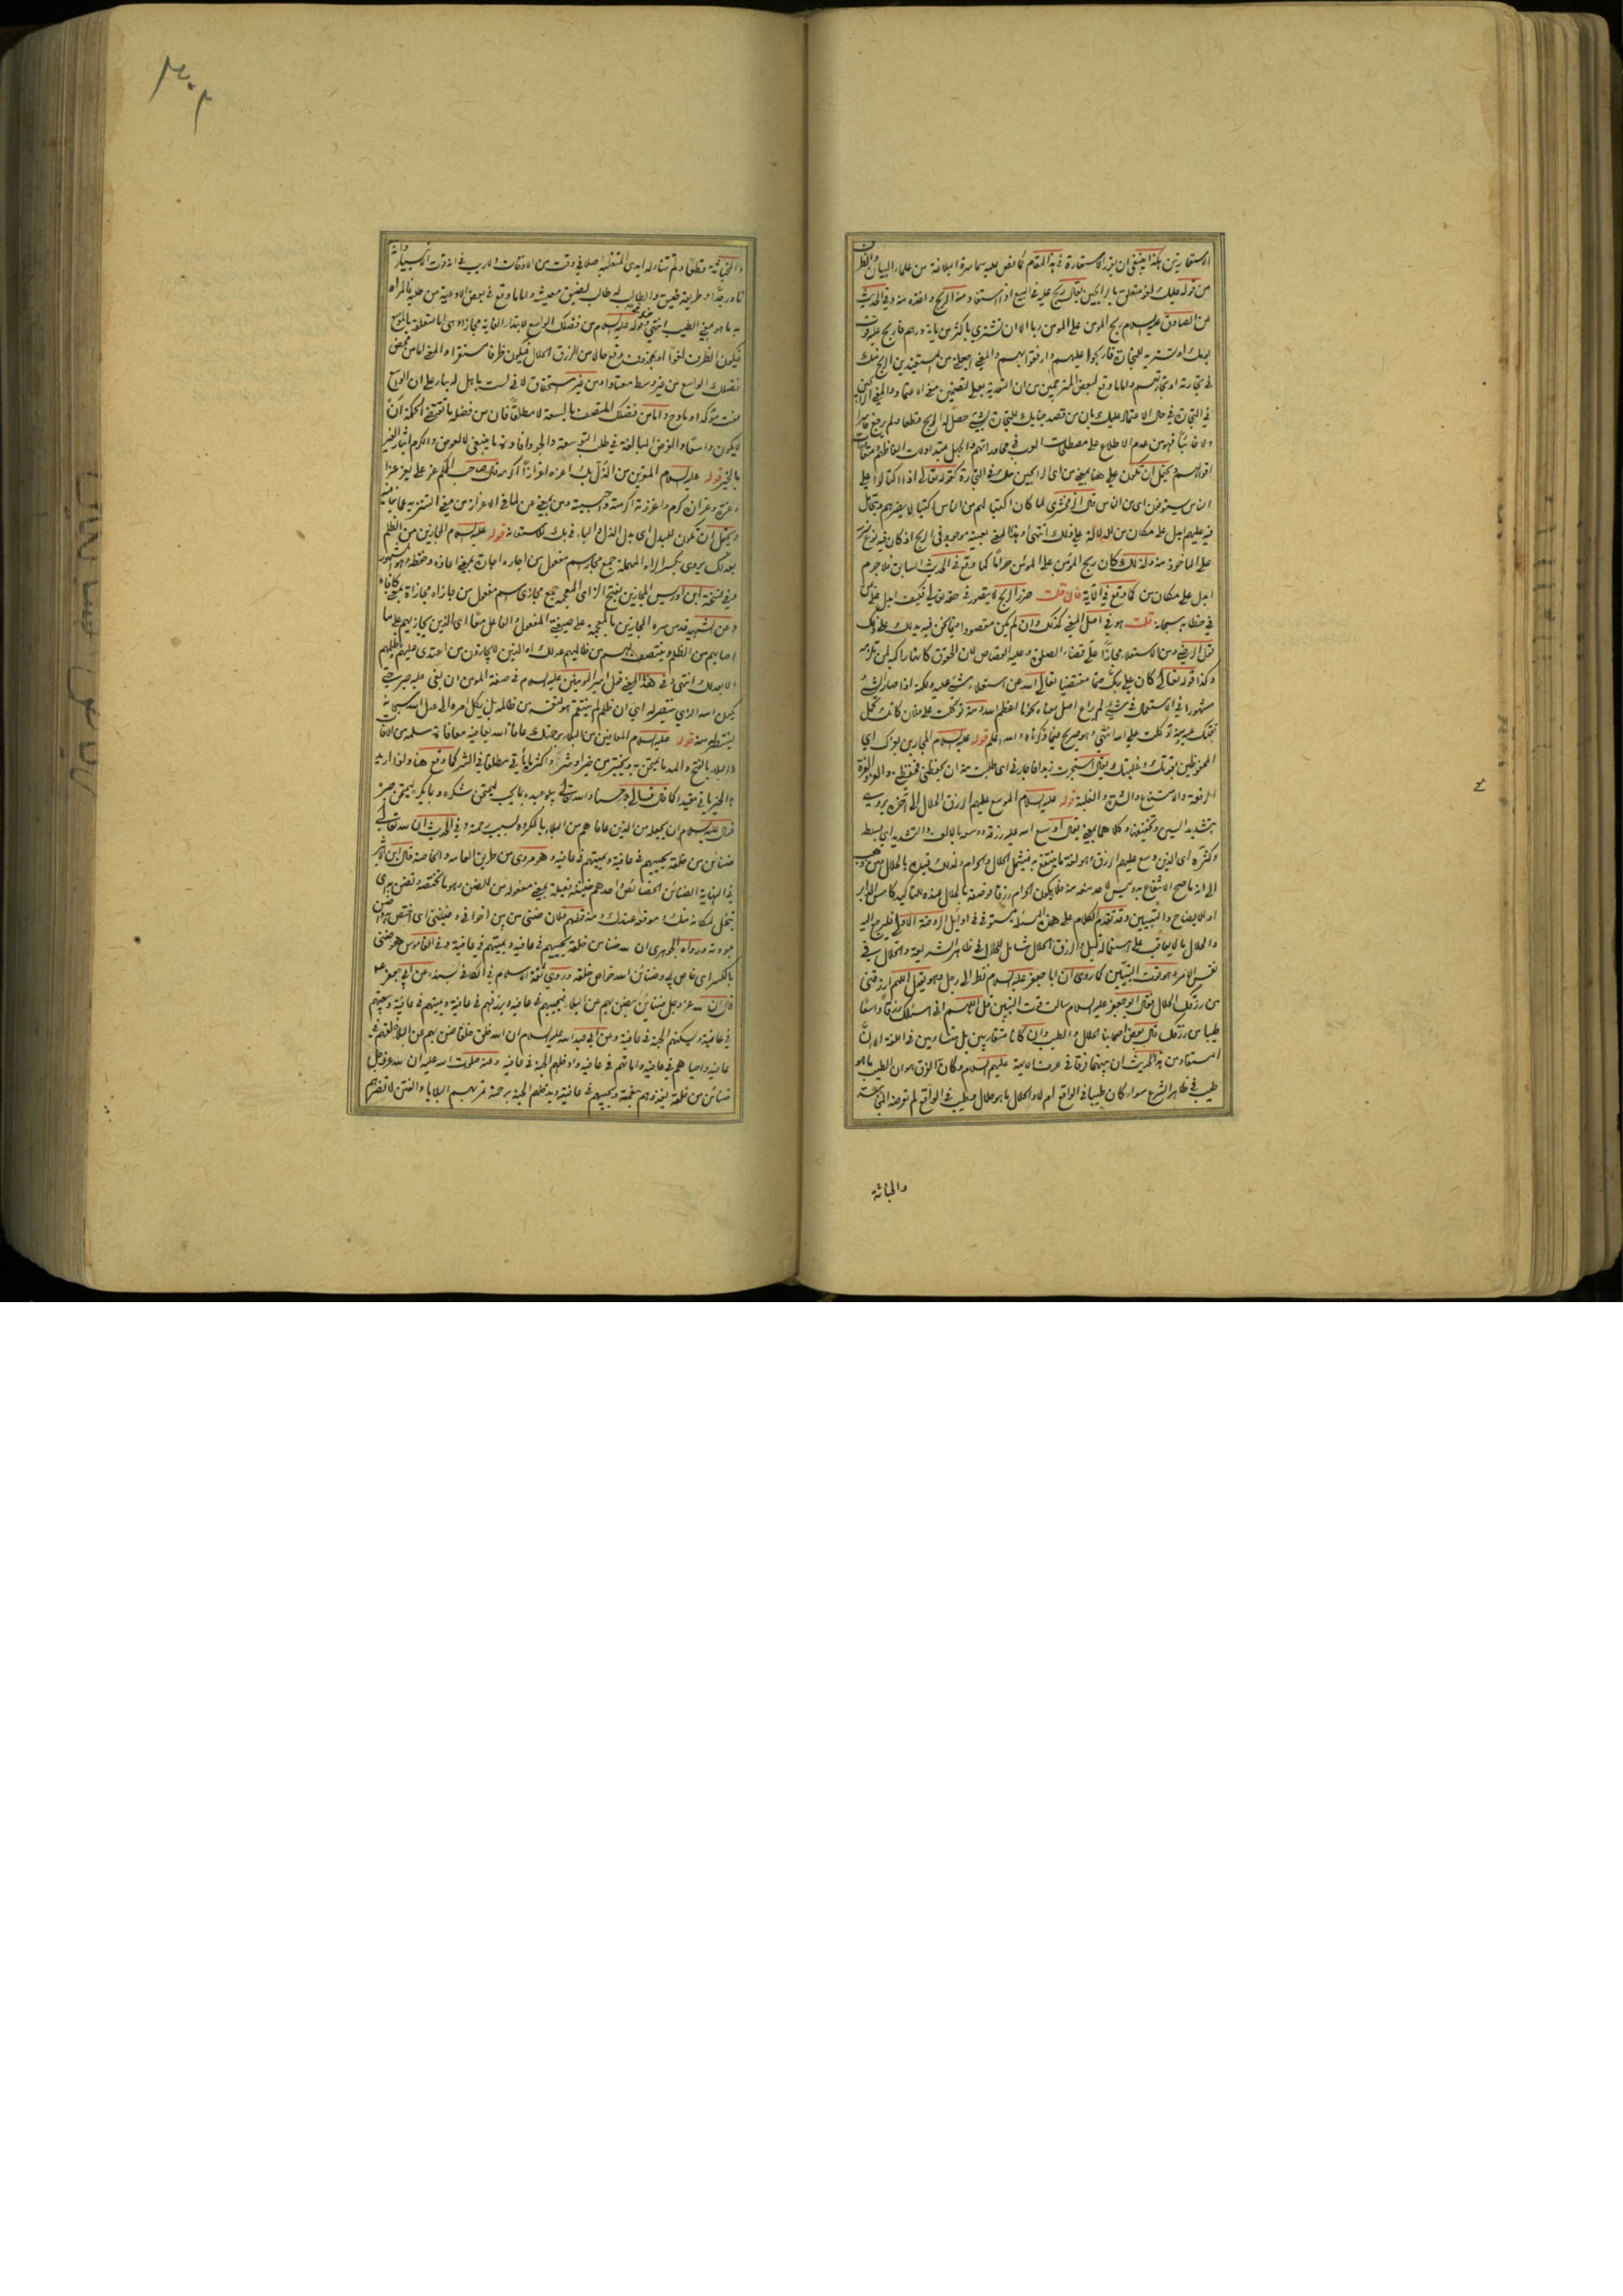 الاستعارتين هكذا ينبغي ان يقرر الاستعارة في هذا المقام كما نص عليه سماسرة البلاغة من علماء البيان والظرف
من قوله عليك لغو متعلق بالرابحين يقال ربح عليه في البيع اذا استفاد منه الربح واخذه منه وفي الحديث
عن الصادق عليه السلام ربح المومن على المومن ربا الا ان يشتري باكثر من ماية درهم فاربح عليه قوت
يومك او يشتريه للتجارة فاربحوا عليهم وارفقوا بهم والمعنى اجعلني من المستفيدين الربح منك
في تجارته او تجارتهم واما ما وقع لبعض المترجمين من ان التعدية بعلى لتضمين معنى الاعتماد والمعنى
في التجارة في حال الاعتماد عليك بان من قصد جنابك للتجارة بشيء حصل له الربح قطعا ولم يرجع خاسرا
ولا خائبا فهو من عدم الاطلاع على مصطلحات العرب في محاوراتهم والجهل بمتداولات الفاظهم
اقوالهم يحتمل ان تكون على هنا بمعنى من اى الرابحين منك في التجارة كقوله تعالى اذا اكتالوا على
الناس يستوفون اى من الناس قال الزمخشري لما كان اكتيالهم من الناس اكتيالا يضرهم ويتحامل
فيه عليهم ابدل على مكان من للدلالة على ذلك انتهى وهذا المعنى بعينه موجود في الربح اذ كان فيه نوع ضرر
على الماخوذ منه ولذلك كان ربح المومن على المومن حراما كما وقع في الحديث السابق فلا جرم
ابدل على مكان من كما وقع في الآية فان قلت ضرر الربح لا يتصور في حقه تعالى فكيف ابدل على
في خطابه سبحانه قلت هو في اصل المعنى كذلك وان لم يكن مقصودا فيما نحن فيه يدلك على ذلك
قول الرضي ومن الاستعلاء مجازا على قضاء الصلوة وعليه القصاص لان الحقوق كانها راكبة لمن تلزمه
وكذا قوله تعالى كان على ربك حتما مقضيا تعالى الله عن استعلاء شيء عليه ولكنه اذا صار الشيء
مشهورا في الاستعمال في شيء لم يراع اصل معناه نحو ما اعظم الله ومنه توكلت على فلان كانك تحمل
ثقلك عليه ثم توكلت على الله انتهى وهو صريح فيما ذكرناه والله اعلم قوله عليه السلام المجارين بعزك اي
المحفوظين بقوتك وغلبتك يقال استجرت زيدا فاجارني اى طلبت منه ان يحفظني فحفظني والعز والعزة
الرفعة والامتناع والشدة والغلبة قوله عليه السلام الموسع عليهم الرزق الحلال الى آخره يروى
بتشديد السين وتخفيفها وكلاهما بمعنى يقال اوسع الله عليه رزقه ووسعه بالالف والتشديد اي بسطه
وكثره اى الذين وسع عليهم الرزق وهو لغة ما ينتفع به فيشمل الحلال والحرام ولذلك قيده بالحلال ومن ذهب
الى انه ما صح الانتفاع به وليس لاحد منعه منه فلا يكون الحرام رزقا فوصفه بالحلال عنده للتاكيد كامس الدابر
او للايضاح والتبيين وقد تقدم الكلام على هذه المسئلة مستوفى في اوايل الروضة الاولى فليرجع اليه
والحلال ما لا يعاقب على استعماله قيل والرزق الحلال شامل للحلال في ظاهر الشريعة والحلال في
نفس الامر وهو قوت النبيين كما روى ان ابا جعفر عليه السلام نظر الى رجل وهو يقول اللهم ارزقني
من رزقك الحلال فقال ابو جعفر عليه السلام سالت قوت النبيين قل اللهم اني اسئلك رزقا واسعا
طيبا من رزقك قال بعض اصحابنا الحلال والطيب وان كانا متقاربين بل متساويين في اللغة الا ان
المستفاد من هذا الحديث ان بينهما فرقا في عرف الائمة عليهم السلام وكان الفرق هو ان الطيب ما هو
طيب في ظاهر الشرع سواء كان طيبا في الواقع ام لا والحلال ما هو حلال وطيب في الواقع لم تعرضه النجاسة
والخباثة
والخباثة قطعا ولم تتناوله ايدي المتغلبة اصلا في وقت من الاوقات ولا ريب في انه قوت الانبياء وانه
نادر جدا وطريقه ضيق والطالب له طالب لضيق معيشته واما ما وقع في بعض الادعية من طلبه فالمراد
به ما هو بمعنى الطيب انتهى وقوله عليه السلام من فضلك الواسع لابتداء الغاية مجازا وهى اما متعلقة بالموسع
فيكون الظرف لغوا او بمحذوف وقع حالا من الرزق الحلال فيكون ظرفا مستقرا والمعنى اما من محض
فضلك الواسع من غير وسط معتاد او من غير استحقاق لاني لست باهل له بناء على ان الواسع
نعت مؤكد او مادح واما من فضلك المتصف بالسعة لا مطلقا فان من فضله ما تقتضي الحكمة ان
لا يكون واسعا والغرض المبالغة في طلب التوسعة والجود افادة ما ينبغي لا لعوض والكرم ايثار الغير
بالخير قوله عليه السلام المعزين من الذل بك اعزه اعزازا اكرمه قال صاحب المحكم عز علي يعز عزا
وعزة وعزازة كرم واعززته اكرمته واحببته ومن بمعنى عن لما في الاعزاز من معنى التنزيه عما ينافيه
ويحتمل ان تكون للبدل اى بدل الذل والباء في بك للاستعانة قوله عليه السلام المجارين من الظلم
بعدلك يروى بكسر الراء المهملة جمع مجار اسم مفعول من اجاره اجارة بمعنى اعاذه وحفظه وهو المشهور
وفي نسخة ابن ادريس المجازين بفتح الزاى المعجمة جمع مجازى اسم مفعول من جازاه مجازاة بمعنى كافاه
وعن الشهيد قدس سره المجازين بالمعجمة على صيغتي المفعول والفاعل معا اى الذين يجازيهم على ما
اصابهم من الظلم وينتصف لهم من ظالميهم بعدلك او الذين لا يجازون من اعتدى عليهم بظلمهم
الا بعدلك انتهى وفي هذا المعنى قول امير المومنين عليه السلام في صفة المومن ان بغى عليه صبر حتى
يكون الله الذي ينتصر له اى ان ظلم لم ينتقم هو بنفسه من ظالمه بل يكل امره الى عدل الله سبحانه
لينتصر منه قوله عليه السلام المعافين من البلاء برحمتك عافاه الله يعافيه معافاة سلمه من الآفات
والبلاء بالفتح والمد ما يمتحن به ويختبر من خير او شر واكثر ما يأتي مطلقا في الشر كما وقع هنا واذا اريد به
الخير ياتي مقيدا كما قال تعالى بلاء حسنا والله تعالى يبلو عبده بما يحب ليمتحن شكره وبما يكره ليمتحن صبره
سال عليه السلام ان يجعله من الذين عافاهم من البلاء بالمكروه بسبب رحمته وفي الحديث ان لله تعالى
ضنائن من خلقه يحييهم في عافية ويميتهم في عافية وهو مروى من طريق العامة والخاصة قال ابن الاثير
في النهاية الضنائن الخصائص واحدهم ضنينة فعيلة بمعنى مفعولة من الضن وهو ما تختصه وتضن به اى
تبخل لمكانه منك وموقعه عندك ومنه قولهم فلان ضني من بين اخواني وضنتي اى اختص به واضن
بمودته ورواه الجوهرى ان لله ضنا من خلقه يحييهم في عافية ويميتهم في عافية وفي القاموس هو ضني
بالكسر اى خاص بي وضنائن الله خواص خلقه وروى ثقة الاسلام في الكافي بسنده عن ابي جعفر ع
قال ان لله عز وجل ضنائن يضن بهم عن البلاء فيحييهم في عافية ويرزقهم في عافية ويميتهم في عافية ويبعثهم
في عافية ويسكنهم الجنة في عافية وعن ابي عبد الله عليه السلام ان الله خلق خلقا ضن بهم عن البلاء خلقهم في
عافية واحياهم في عافية واماتهم في عافية وادخلهم الجنة في عافية وعنه صلوات الله عليه ان لله عز وجل
ضنائن من خلقه يغذوهم بنعمته ويحييهم في عافية ويدخلهم الجنة برحمته تمر بهم البلايا والفتن لا تضرهم